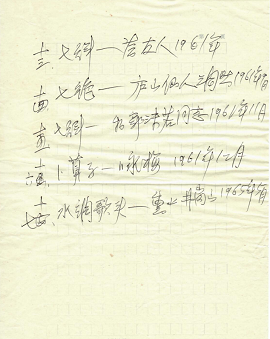 十三、七律——答友人1961年
十四、七绝——庐山仙人洞照1961年9月
十五、七律——和郭沫若同志1961年11月
十六、卜算子——咏梅 1961年12月
十七、水调歌头——重上井岗山1965年5月